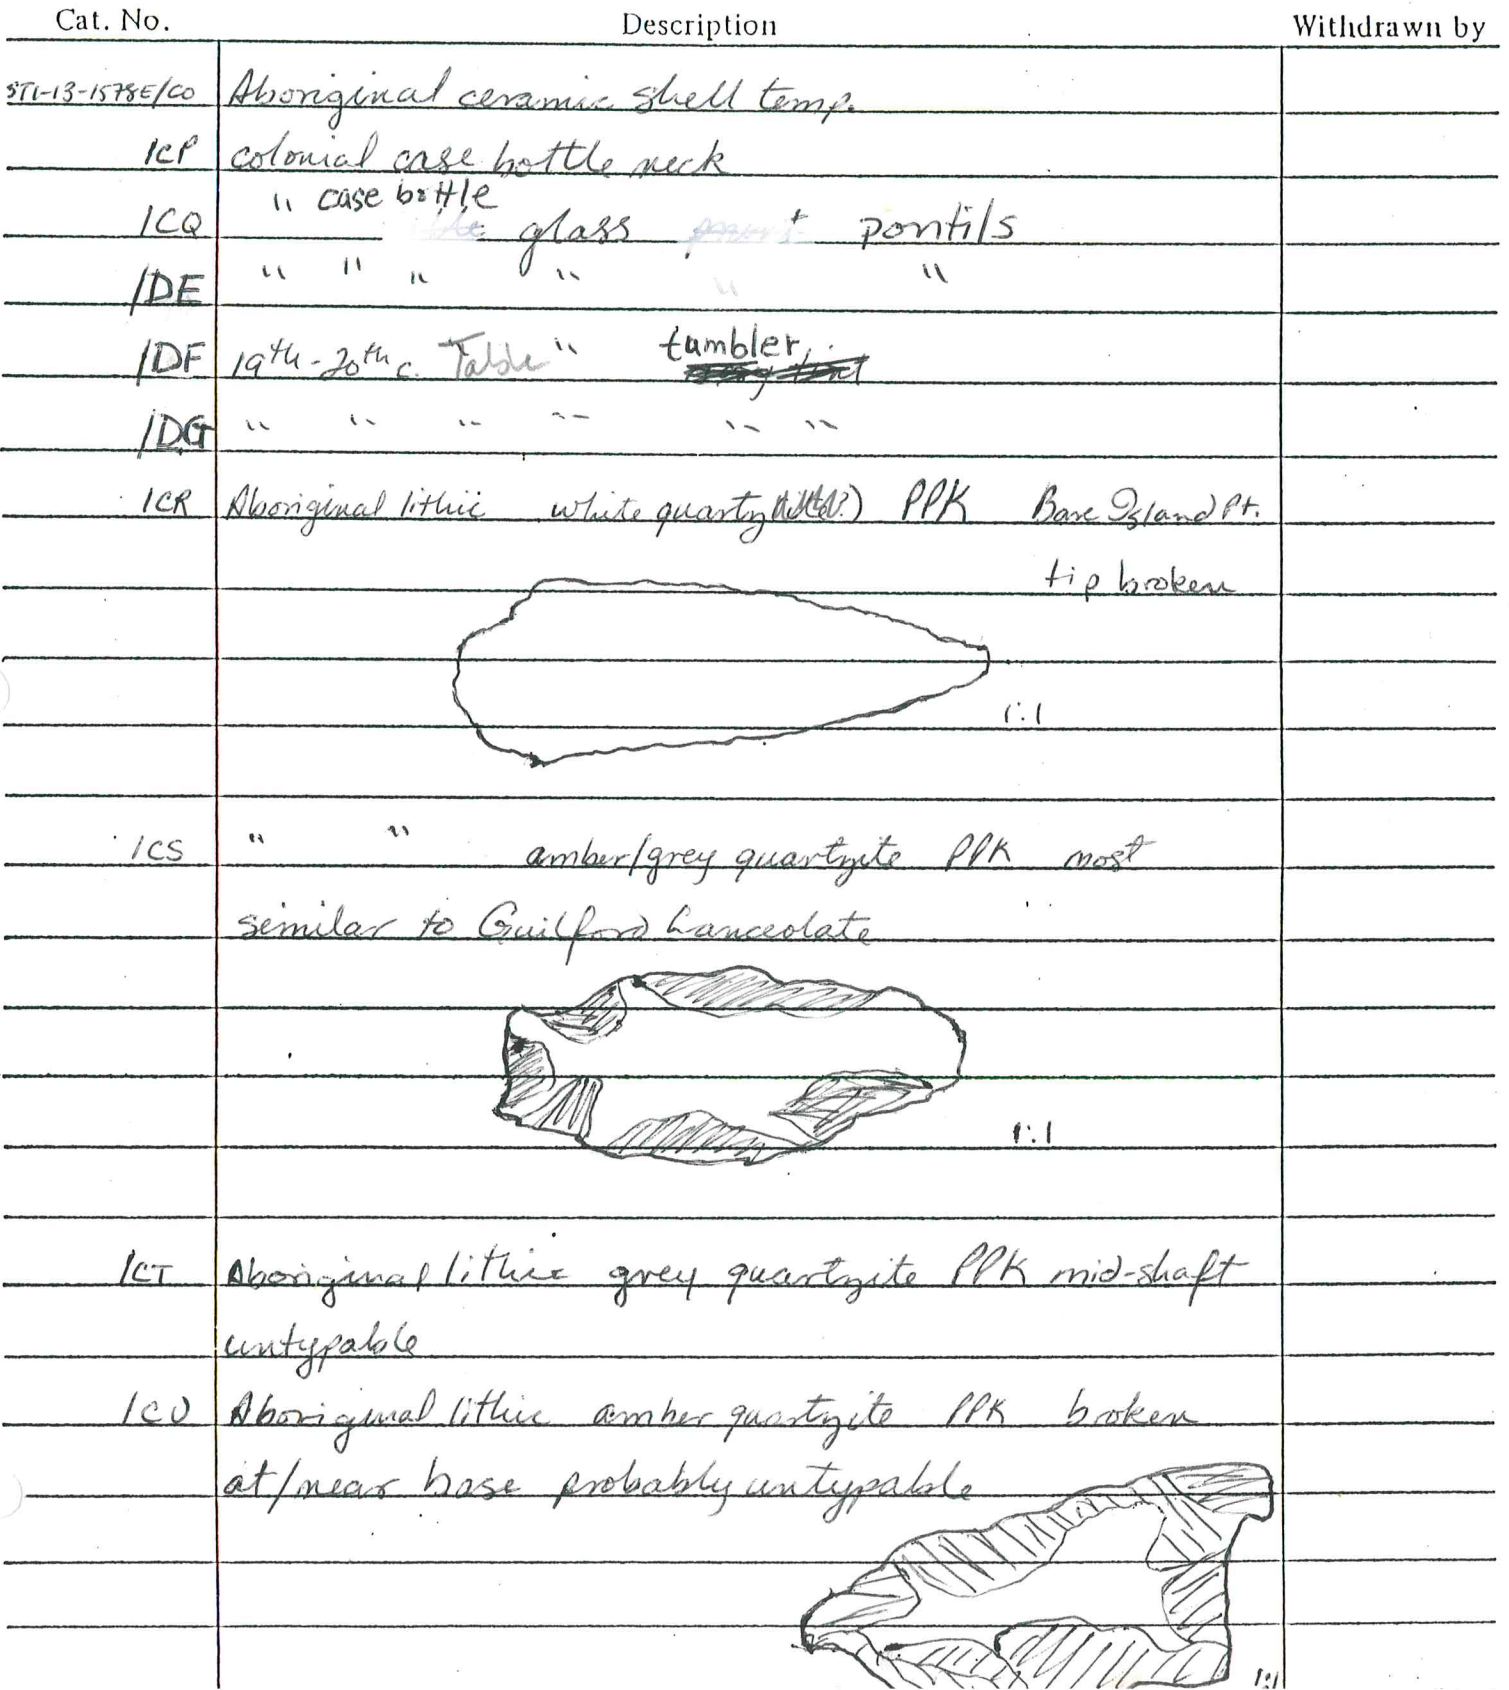 Cat. No. Description Withdrawn by
ST1-13-1578E/CO Aboriginal ceramic shell temp.
/CP colonial case bottle neck
" case bottle
/CQ glass pontils
/DE " " " " " "
/DF 19th-20th c. Table " tumbler
/DG " " " " " "
/CR Aboriginal lithic white PPK Bare Island Pt.
tip broken
1:1
/CS " " amber/grey quartzite PPK most
similar to Guilford Lanceolate
1:1
/CT Aboriginal lithic grey quartzite PPK mid-shaft
untypable
/CU Aboriginal lithic amber quartzite PPK broken
at/near base probably untypable
1:1